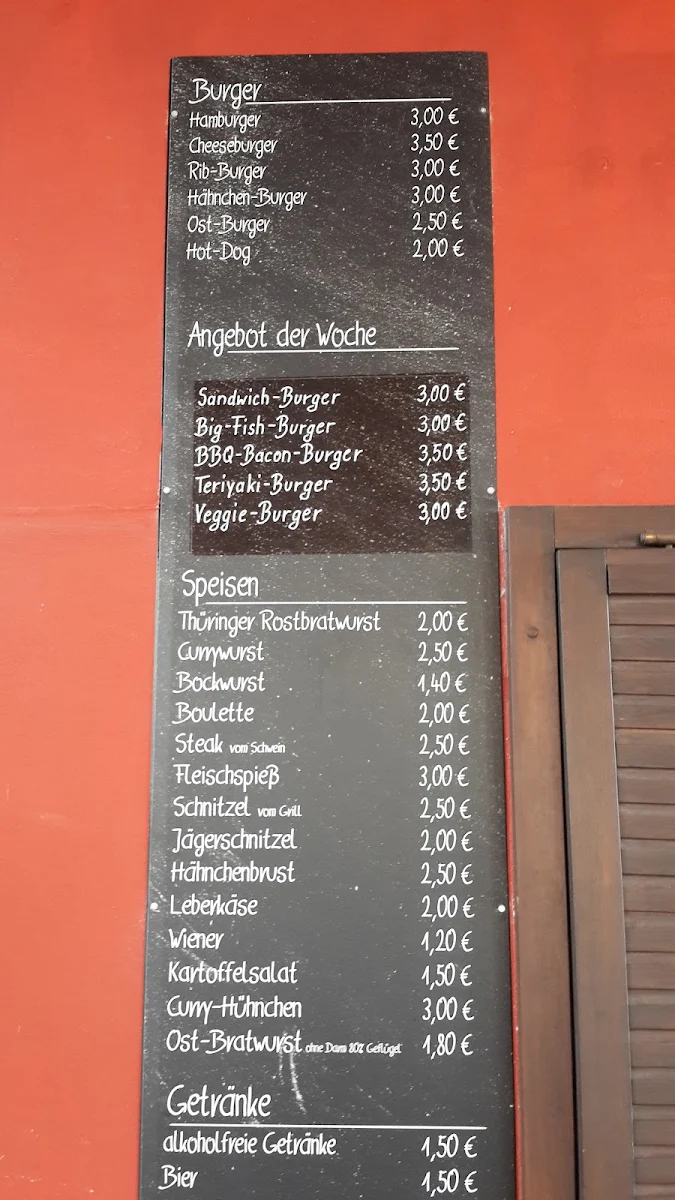 Burger
Hamburger 3,00 €
Cheeseburger 3,50 €
Rib-Burger 3,00 €
Hähnchen-Burger 3,00 €
Ost-Burger 2,50 €
Hot-Dog 2,00 €
Angebot der Woche
Sandwich-Burger 3,00 €
Big-Fish-Burger 3,00 €
BBQ-Bacon-Burger 3,50 €
Teriyaki-Burger 3,50 €
Veggie-Burger 3,00 €
Speisen
Thüringer Rostbratwurst 2,00 €
Currywurst 2,50 €
Bockwurst 1,40 €
Boulette 2,00 €
Steak vom Schwein 2,50 €
Fleischspieß 3,00 €
Schnitzel vom Grill 2,50 €
Jägerschnitzel 2,00 €
Hähnchenbrust 2,50 €
Leberkäse 2,00 €
Wiener 1,20 €
Kartoffelsalat 1,50 €
Curry-Hühnchen 3,00 €
Ost-Bratwurst ohne Darm 80% Geflügel 1,80 €
Getränke
alkoholfreie Getränke 1,50 €
Bier 1,50 €